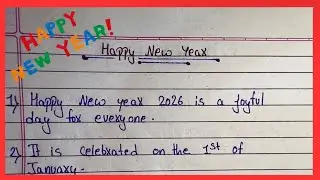 HAPPY
NEW YEAR!
Happy New Year
1) Happy New year 2026 is a joyful
day for everyone.
2) It is celebrated on the 1st of
January.